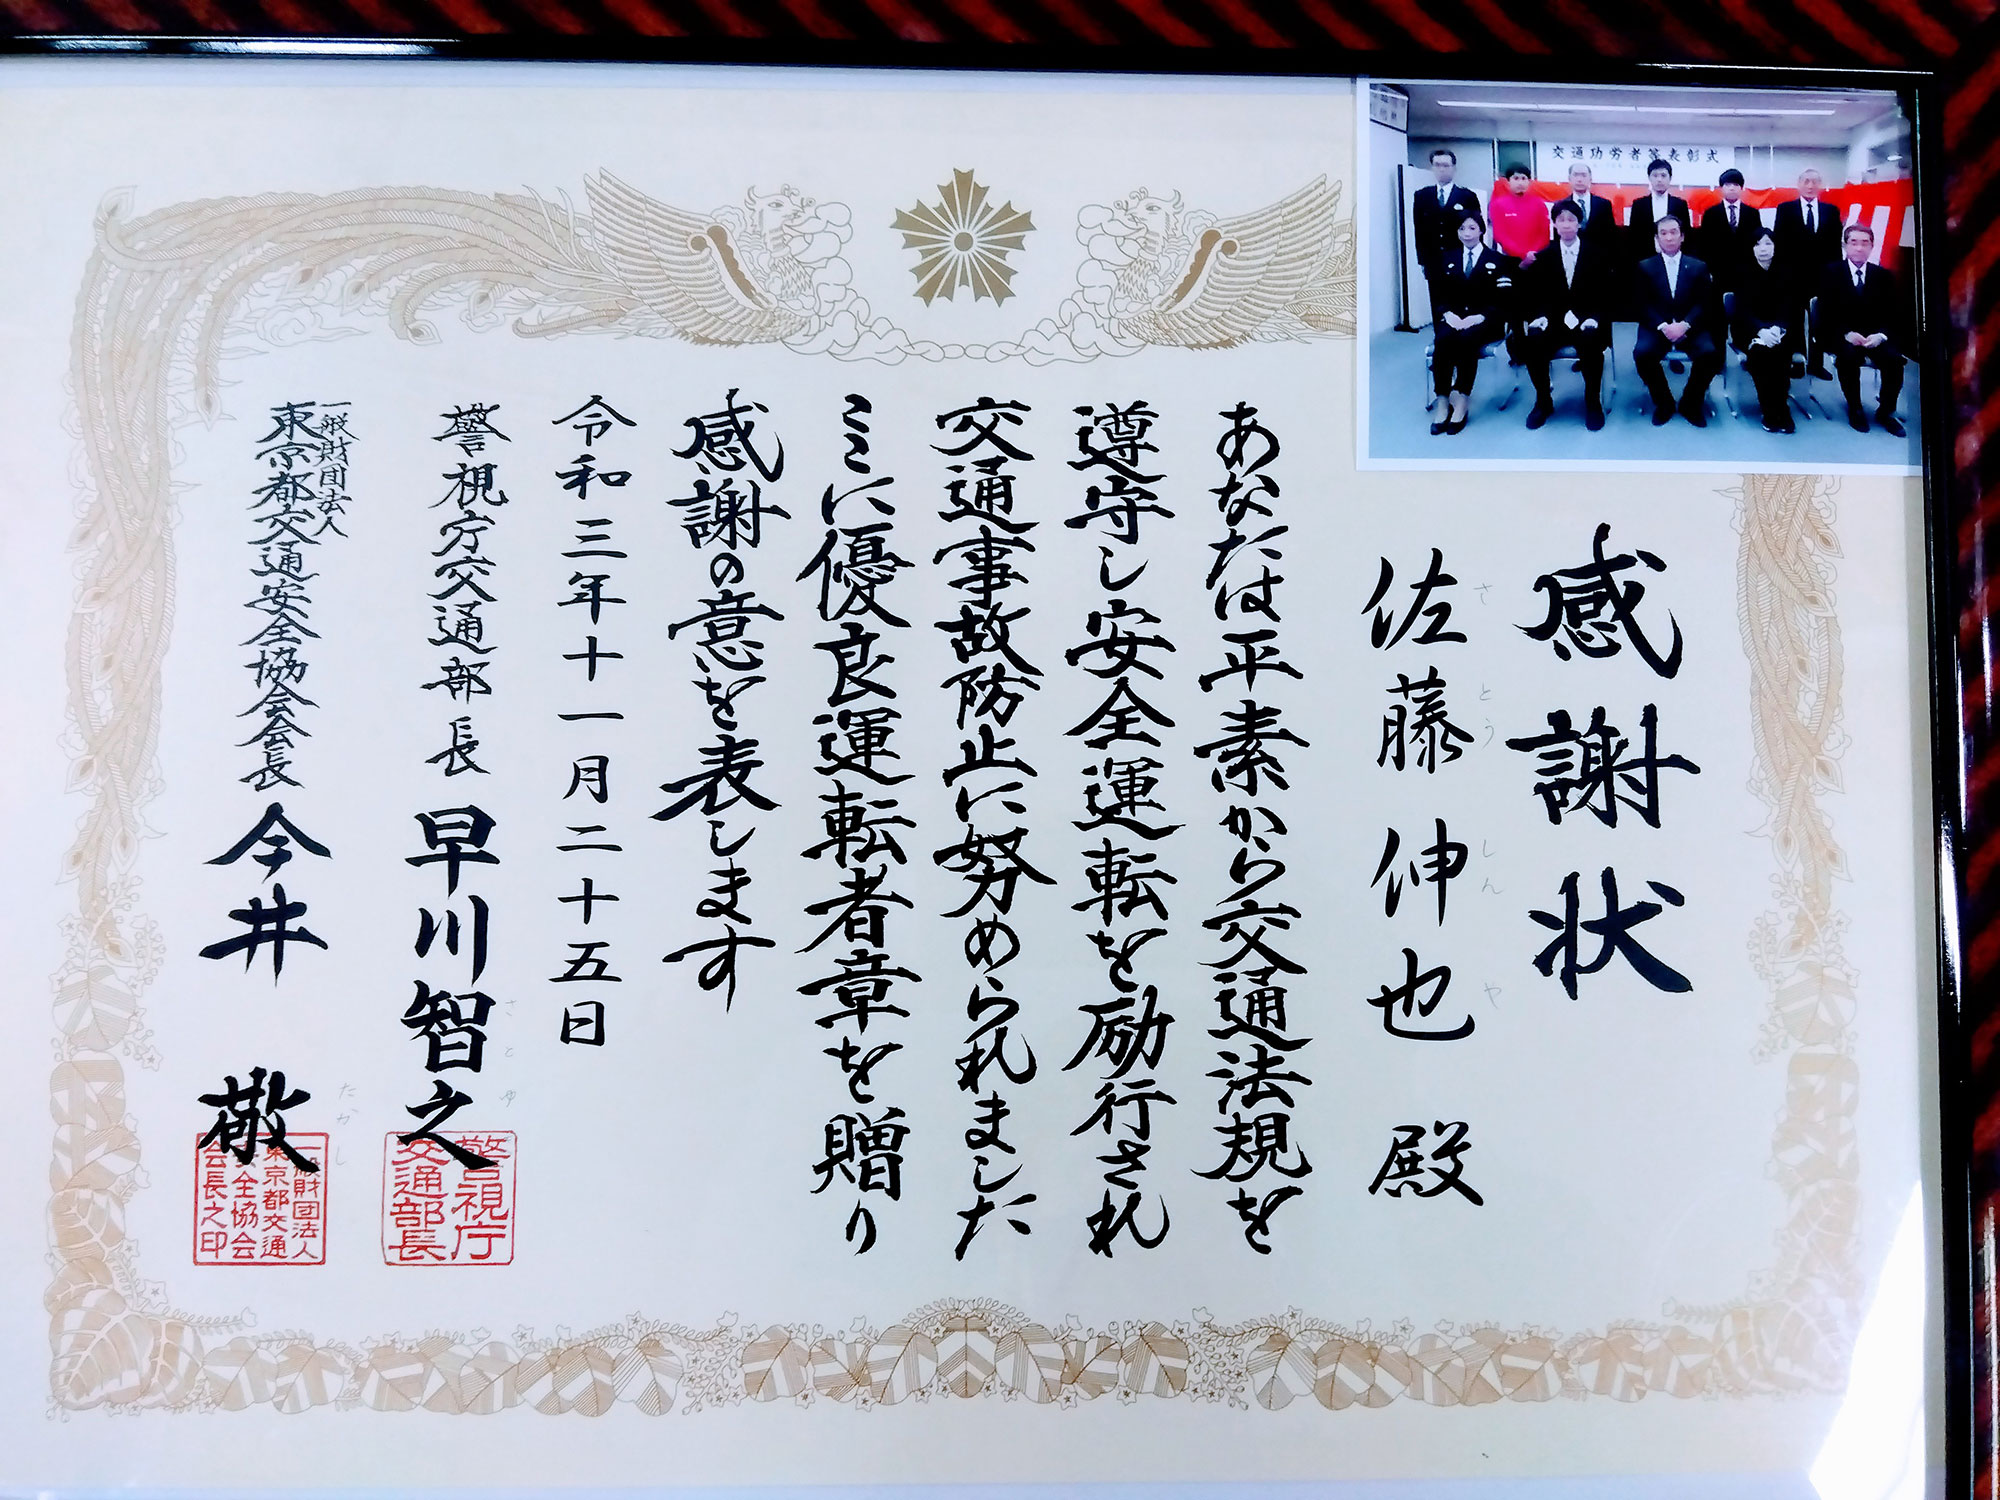 交通功労者等表彰式
感謝状
佐藤伸也 殿
さ とう しん や
あなたは平素から交通法規を
遵守し安全運転を励行され
交通事故防止に努められました
ここに優良運転者章を贈り
感謝の意を表します
令和三年十一月二十五日
警視庁交通部長 早川智之
さと ゆ
警視庁
交通部長
一般財団法人
東京都交通安全協会会長 今井 敬
たかし
一般財団法人
東京都交通
安全協会
会長之印